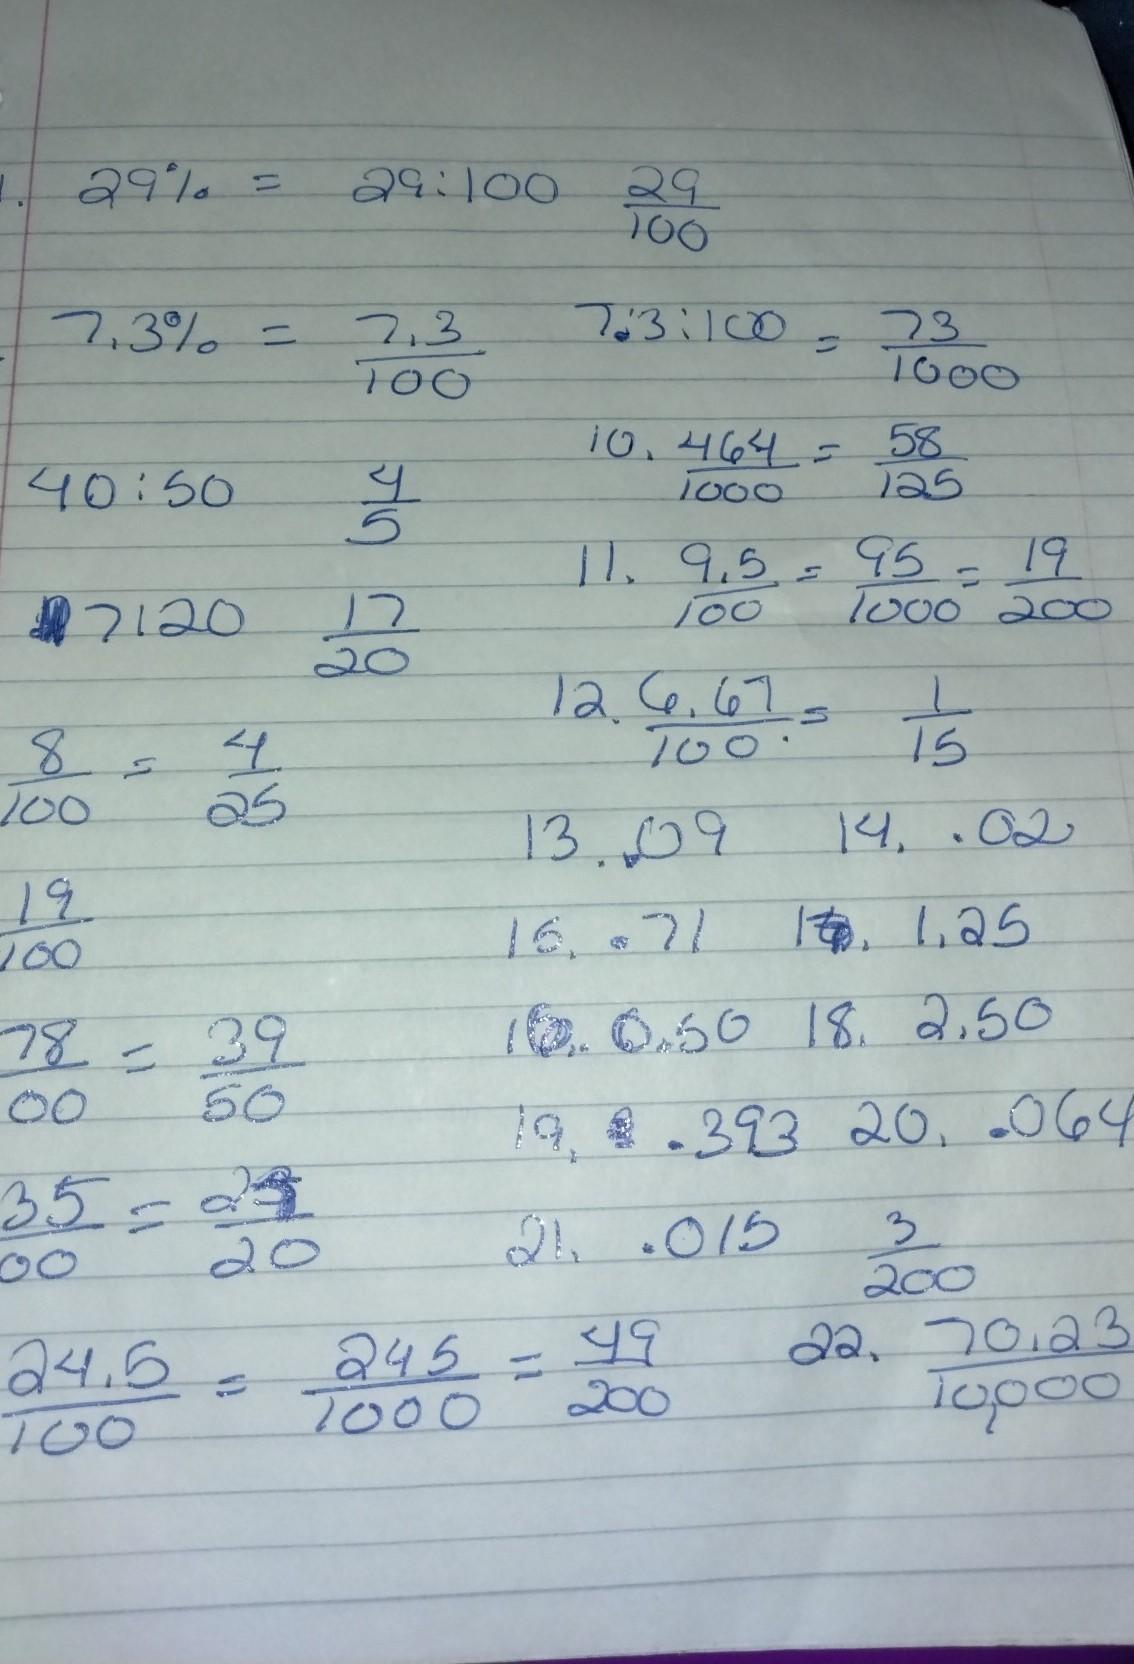 1. 29% = 29:100 29/100
7.3% = 7.3/100 7.3:100 = 73/1000
10. 464/1000 = 58/125
40:50 4/5
11. 9.5/100 = 95/1000 = 19/200
7120 17/20
12. 6.67/100 = 1/15
8/100 = 4/25
13. .09 14. .02
19/100
15. .71 1 . 1.25
78/00 = 39/50
16. 0.50 18. 2.50
19. .393 20. .064
35/00 = /20
21. .015 3/200
24.5/100 = 245/1000 = 49/200 22. 70.23/10,000